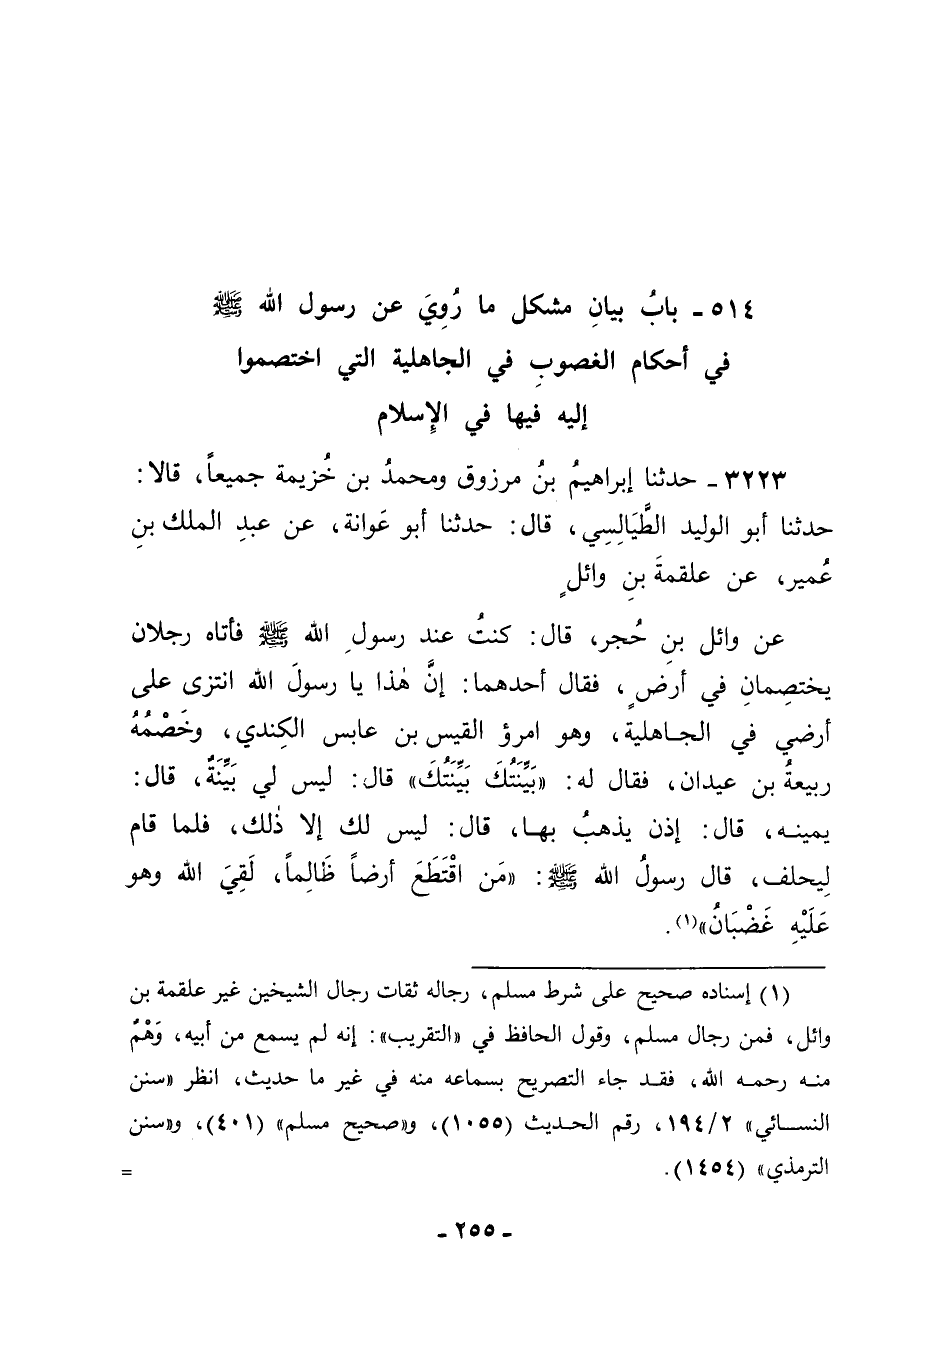 ٥١٤ ـ بابُ بيانِ مشكل ما رُوِيَ عن رسول الله ﷺ
في أحكام الغصوبِ في الجاهلية التي اختصموا
إليه فيها في الإسلام
٣٢٢٣ ـ حدثنا إبراهيمُ بنُ مرزوق ومحمدُ بن خُزيمة جميعاً، قالا:
حدثنا أبو الوليد الطَّيَالِسِي، قال: حدثنا أبو عَوانة، عن عبدِ الملك بنِ
عُمير، عن علقمةَ بنِ وائلٍ
عن وائل بنِ حُجر، قال: كنتُ عند رسولِ الله ﷺ فأتاه رجلان
يختصِمانِ في أرضٍ، فقال أحدهما: إنَّ هٰذا يا رسولَ الله انتزى على
أرضي في الجـاهلية، وهو امرؤ القيس بن عابس الكِندي، وخَصْمُهُ
ربيعةُ بن عيدان، فقال له: «بَيِّنَتُكَ بَيِّنَتُكَ» قال: ليس لي بَيِّنَةٌ، قال:
يمينـه، قال: إذن يذهبُ بهـا، قال: ليس لك إلا ذٰلك، فلما قام
لِيحلف، قال رسولُ الله ﷺ: «مَن اقْتَطَعَ أرضاً ظَالِماً، لَقِيَ الله وهو
عَلَيْهِ غَضْبَانُ»(١).
(١) إسناده صحيح على شرط مسلم، رجاله ثقات رجال الشيخين غير علقمة بن
وائل، فمن رجال مسلم، وقول الحافظ في «التقريب»: إنه لم يسمع من أبيه، وَهْمٌ
منـه رحمـه الله، فقـد جاء التصريح بسماعه منه في غير ما حديث، انظر «سنن
النسـائي» ١٩٤/٢، رقم الحـديث (١٠٥٥)، و«صحيح مسلم» (٤٠١)، و«سنن
الترمذي» (١٤٥٤). =
ـ ٢٥٥ ـ